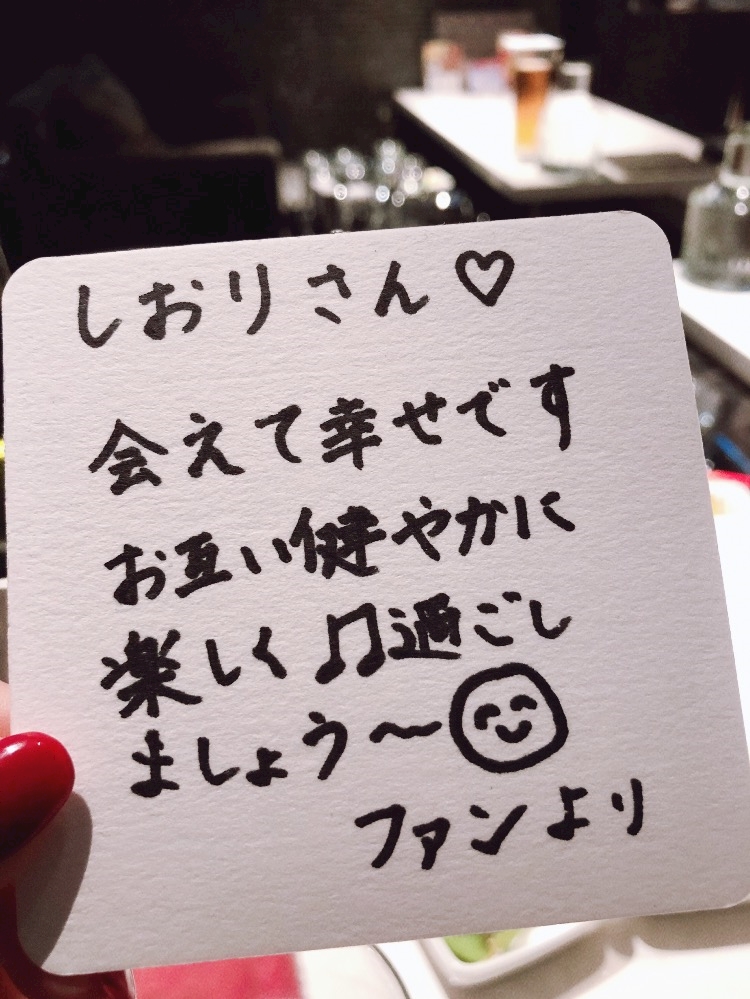 しおりさん♡
会えて幸せです
お互い健やかに
楽しく♫過ごし
ましょう〜
ファンより